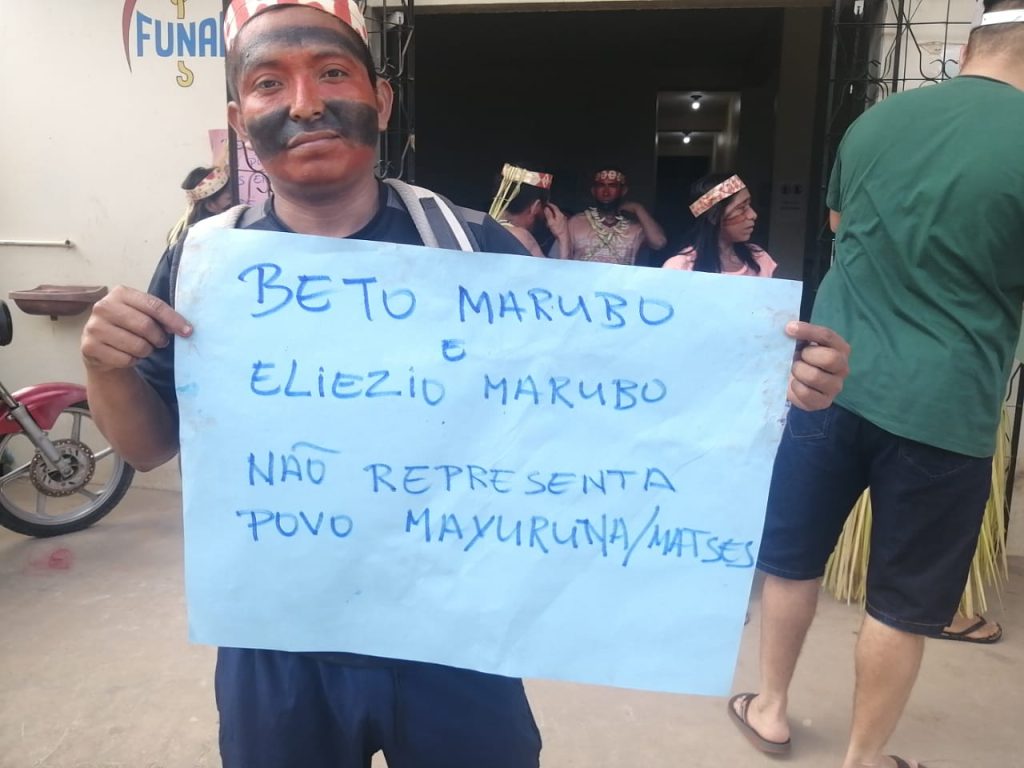 FUNAI
BETO MARUBO
E
ELIEZIO MARUBO
NÃO REPRESENTA
POVO MAYURUNA/MATSES